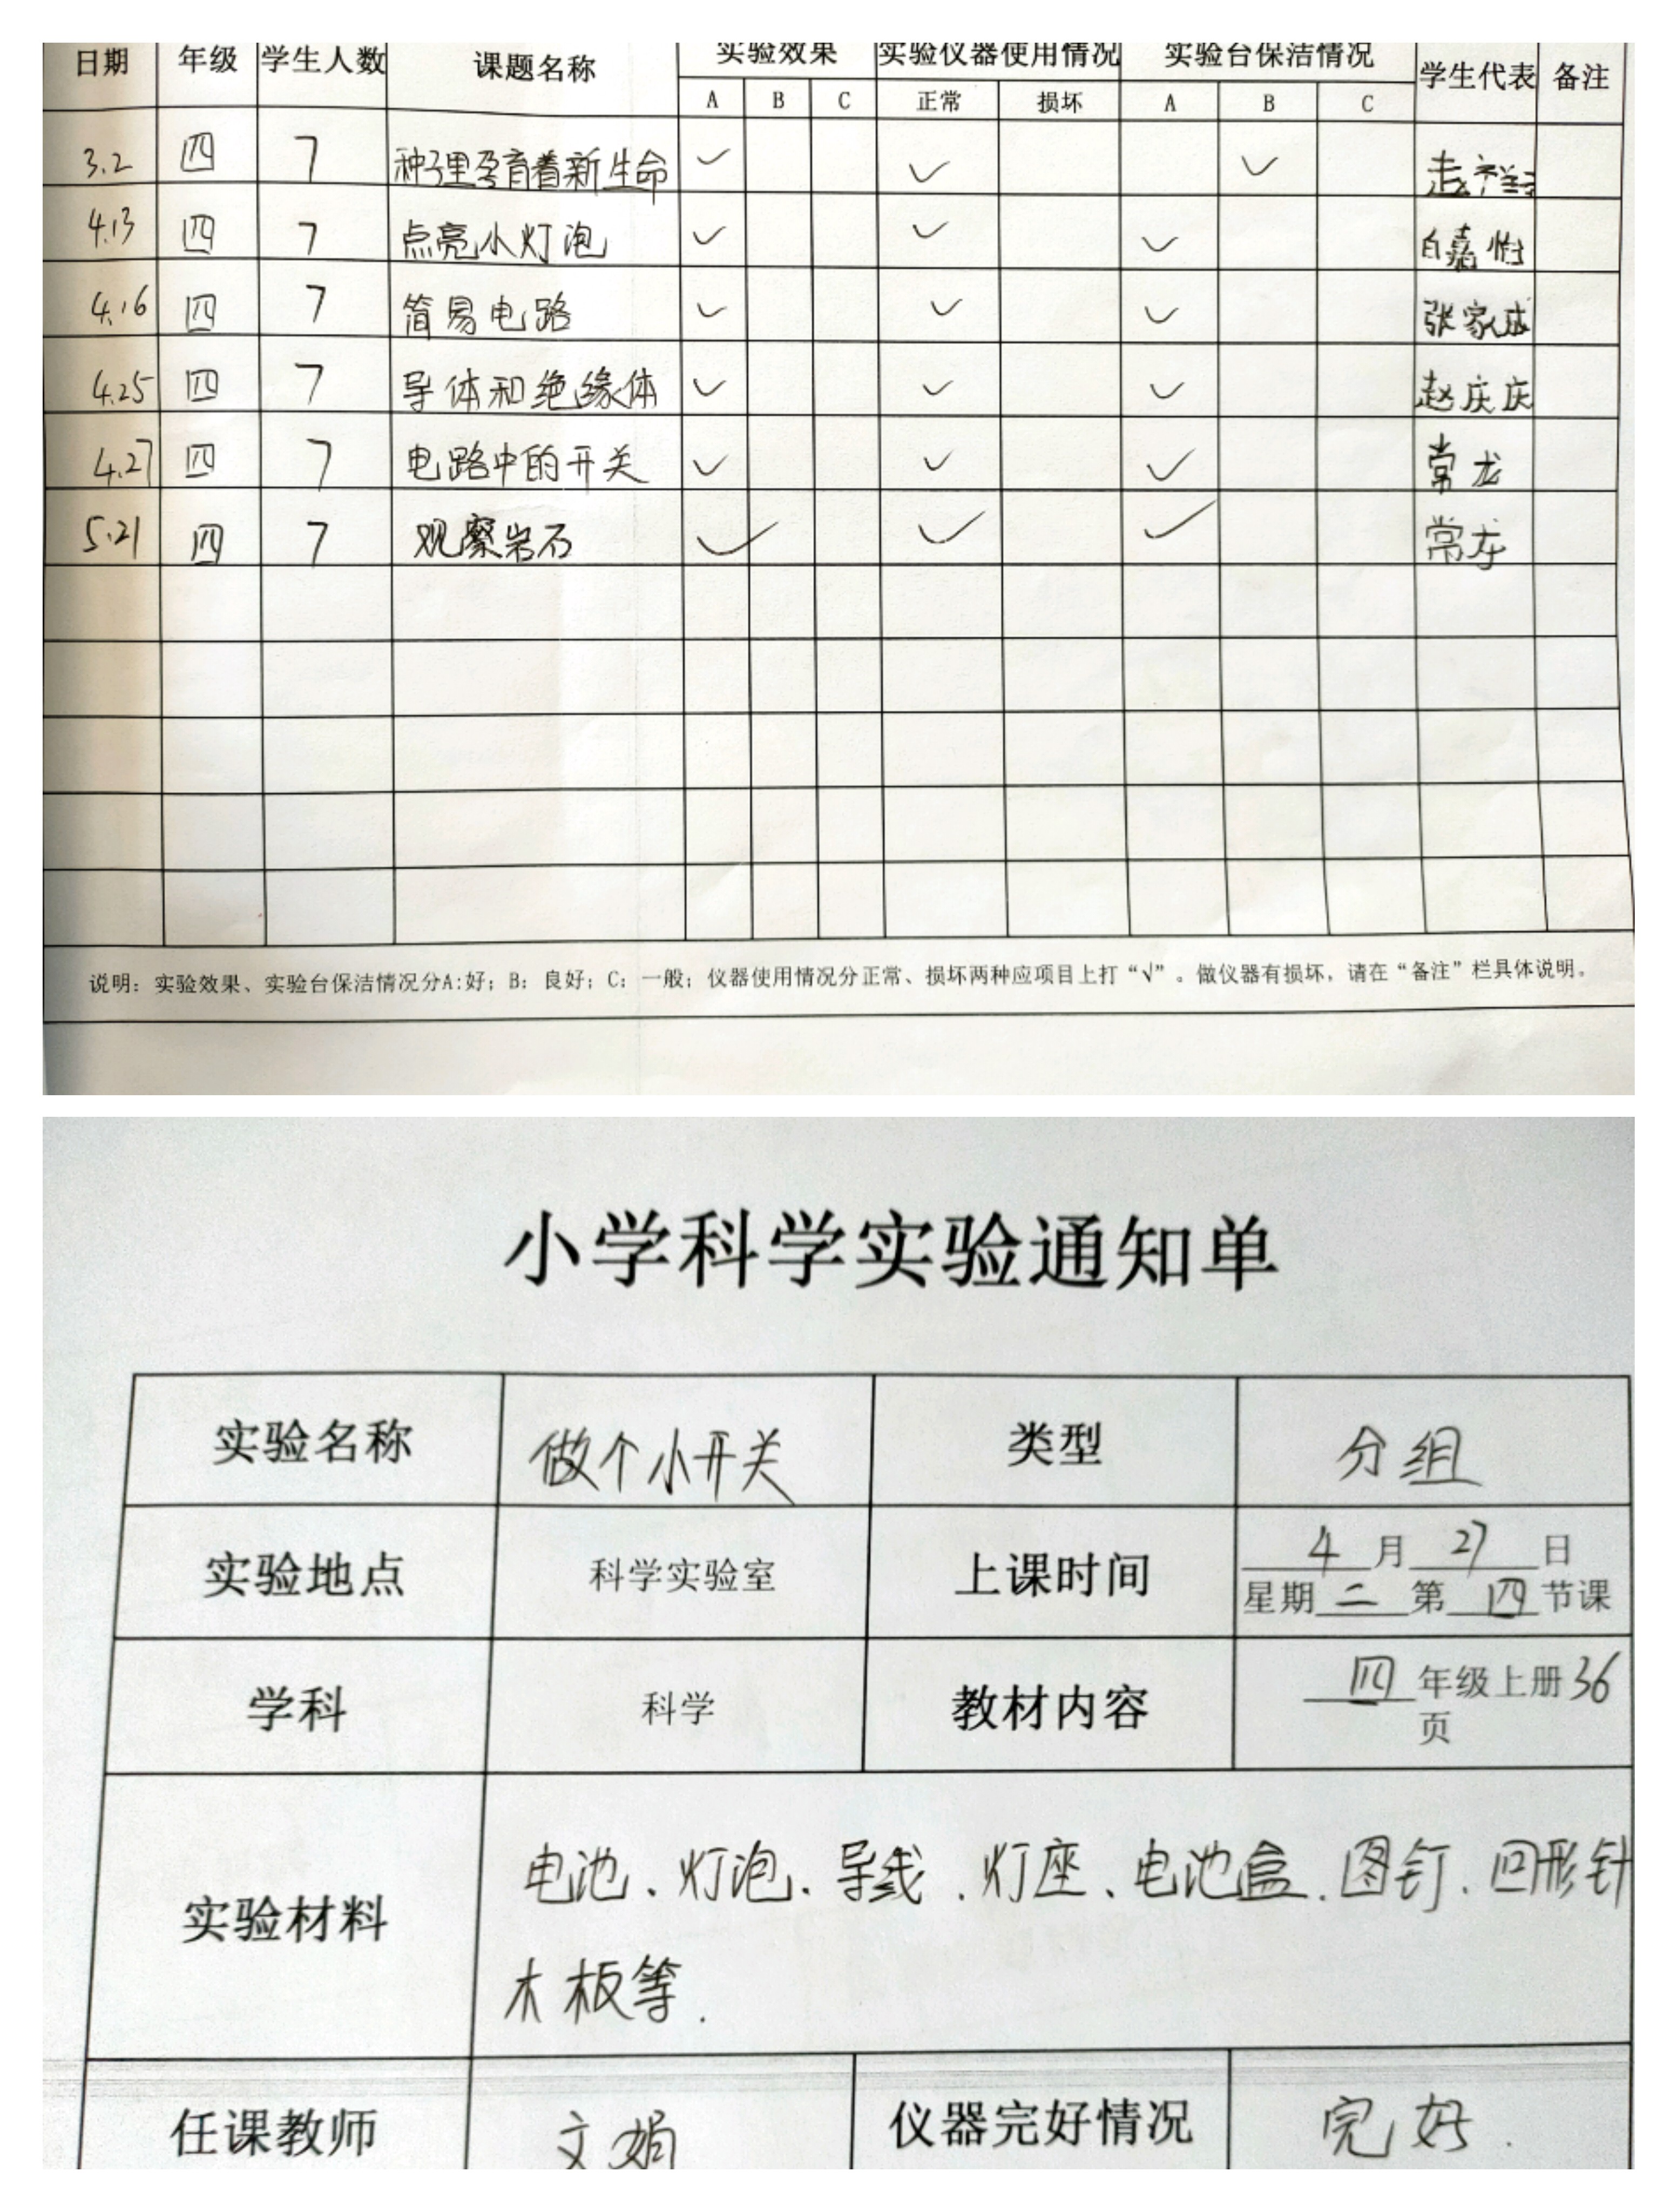 日期 年级 学生人数 课题名称 实验效果 实验仪器使用情况 实验台保洁情况 学生代表 备注
A B C 正常 损坏 A B C
3.2 四 7 种子里孕育着新生命 ✓ ✓ ✓
4.13 四 7 点亮小灯泡 ✓ ✓ ✓ 白嘉怡
4.16 四 7 简易电路 ✓ ✓ ✓ 张家成
4.25 四 7 导体和绝缘体 ✓ ✓ ✓ 赵庆庆
4.27 四 7 电路中的开关 ✓ ✓ ✓ 常龙
5.21 四 7 观察岩石 ✓ ✓ ✓ 常龙
说明：实验效果、实验台保洁情况分A:好；B：良好；C：一般；仪器使用情况分正常、损坏两种应项目上打“√”。做仪器有损坏，请在“备注”栏具体说明。
小学科学实验通知单
实验名称 做个小开关 类型 分组
实验地点 科学实验室 上课时间 4月27日
星期二第四节课
学科 科学 教材内容 四年级上册36
页
实验材料 电池、灯泡、导线、灯座、电池盒、图钉、回形针
木板等.
任课教师 文娟 仪器完好情况 完好.